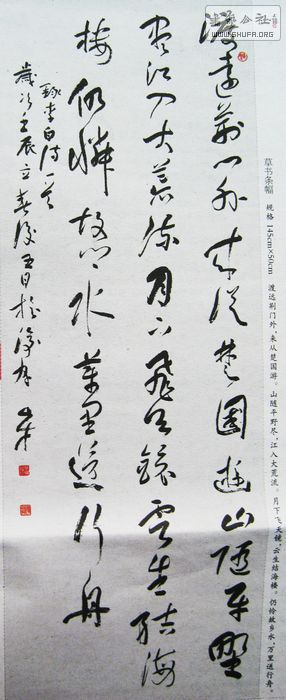 書法公社
WWW.SHUFA.ORG
草书条幅 规格 145cm×50cm 渡远荆门外，来从楚国游。山随平野尽，江入大荒流。月下飞天镜，云生结海楼。仍怜故乡水，万里送行舟。
渡遠荆门外来从楚國遊山随平野
尽江入大荒流月下飛天鏡雲生结海
楼仍憐故乡水萬里送行舟
录李白诗一首
歲次壬辰立春後五日於